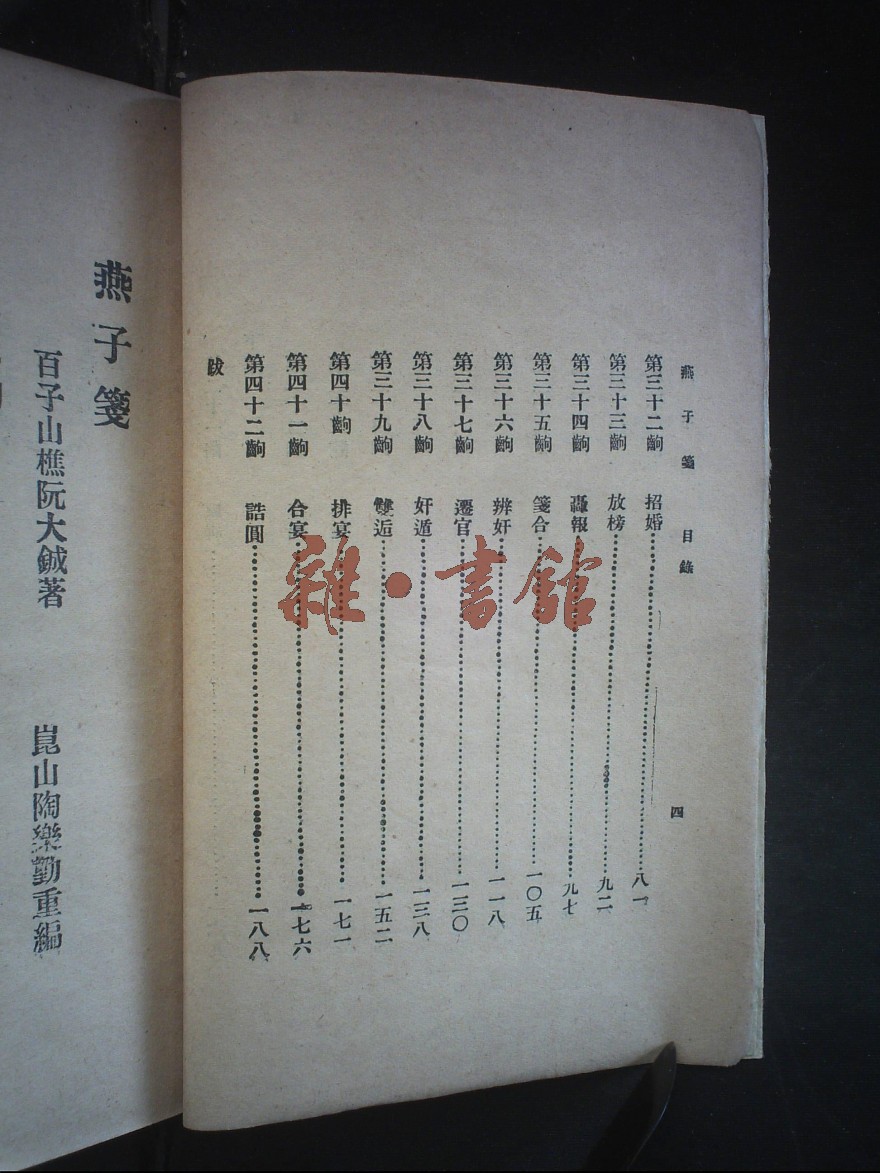 燕子箋 目錄 四
第三十二齣 招婚 八一
第三十三齣 放榜 九二
第三十四齣 轟報 九七
第三十五齣 箋合 一〇五
第三十六齣 辨奸 一一八
第三十七齣 遷官 一三〇
第三十八齣 奸遁 一三八
第三十九齣 雙逅 一五二
第四十齣 排宴 一七一
第四十一齣 合宴 一七六
第四十二齣 誥圓 一八八
跋
燕子箋
百子山樵阮大鋮著 崑山陶樂勤重編
雜·書館